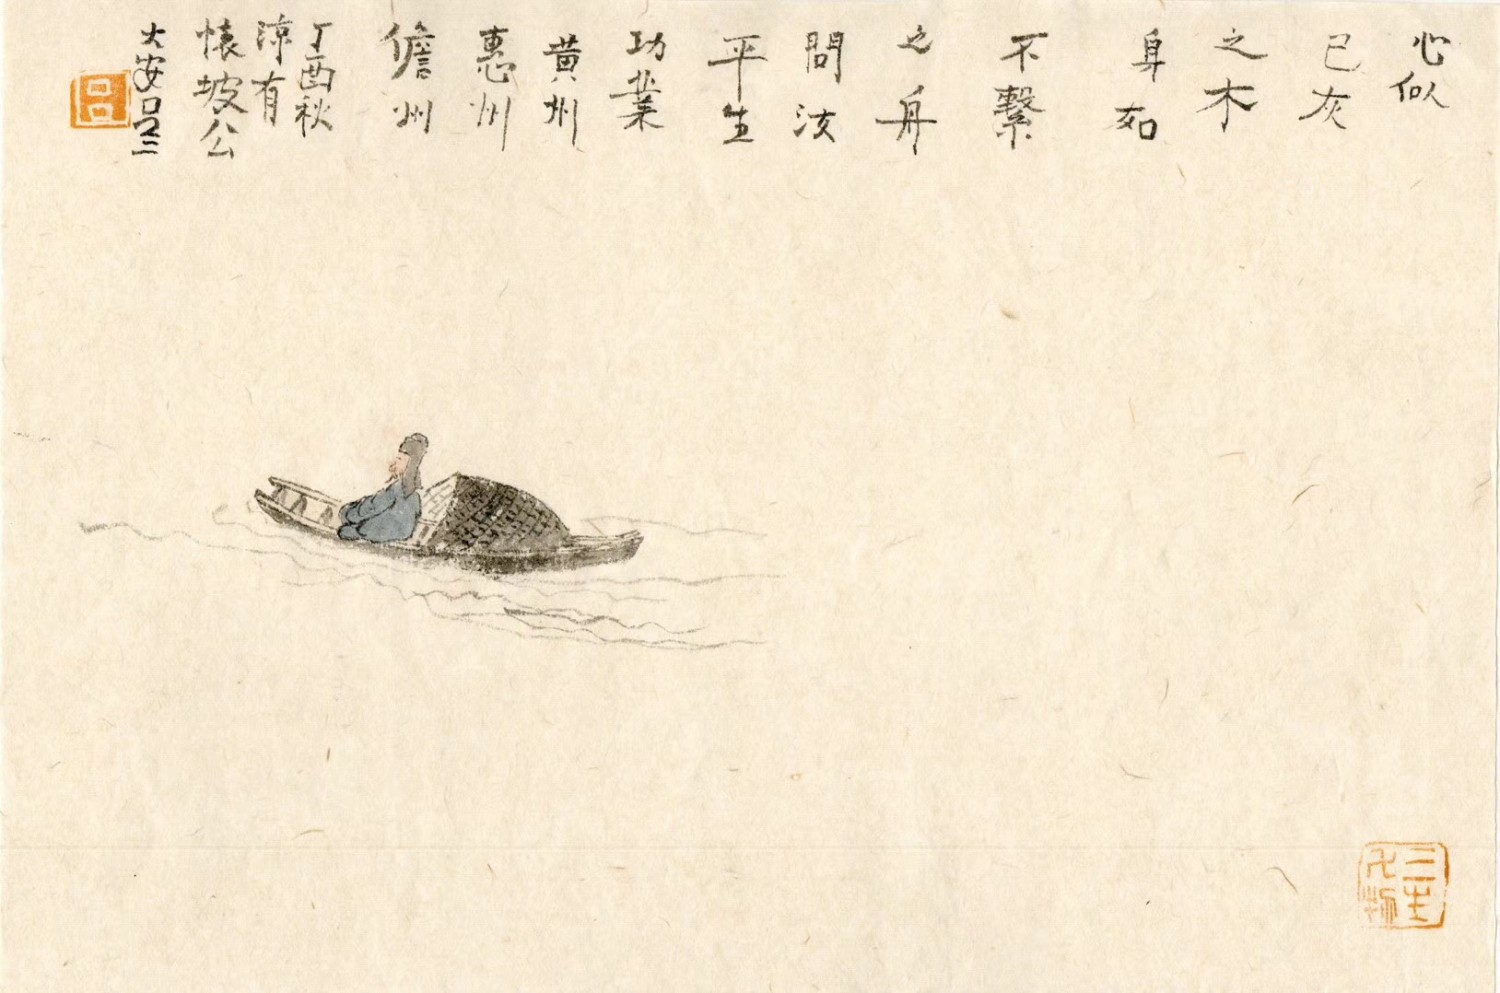 心似
已灰
之木
身如
不繫
之舟
問汝
平生
功業
黄州
惠州
儋州
丁酉秋
涼有
懷坡公
大安呂三
呂
三生
万物